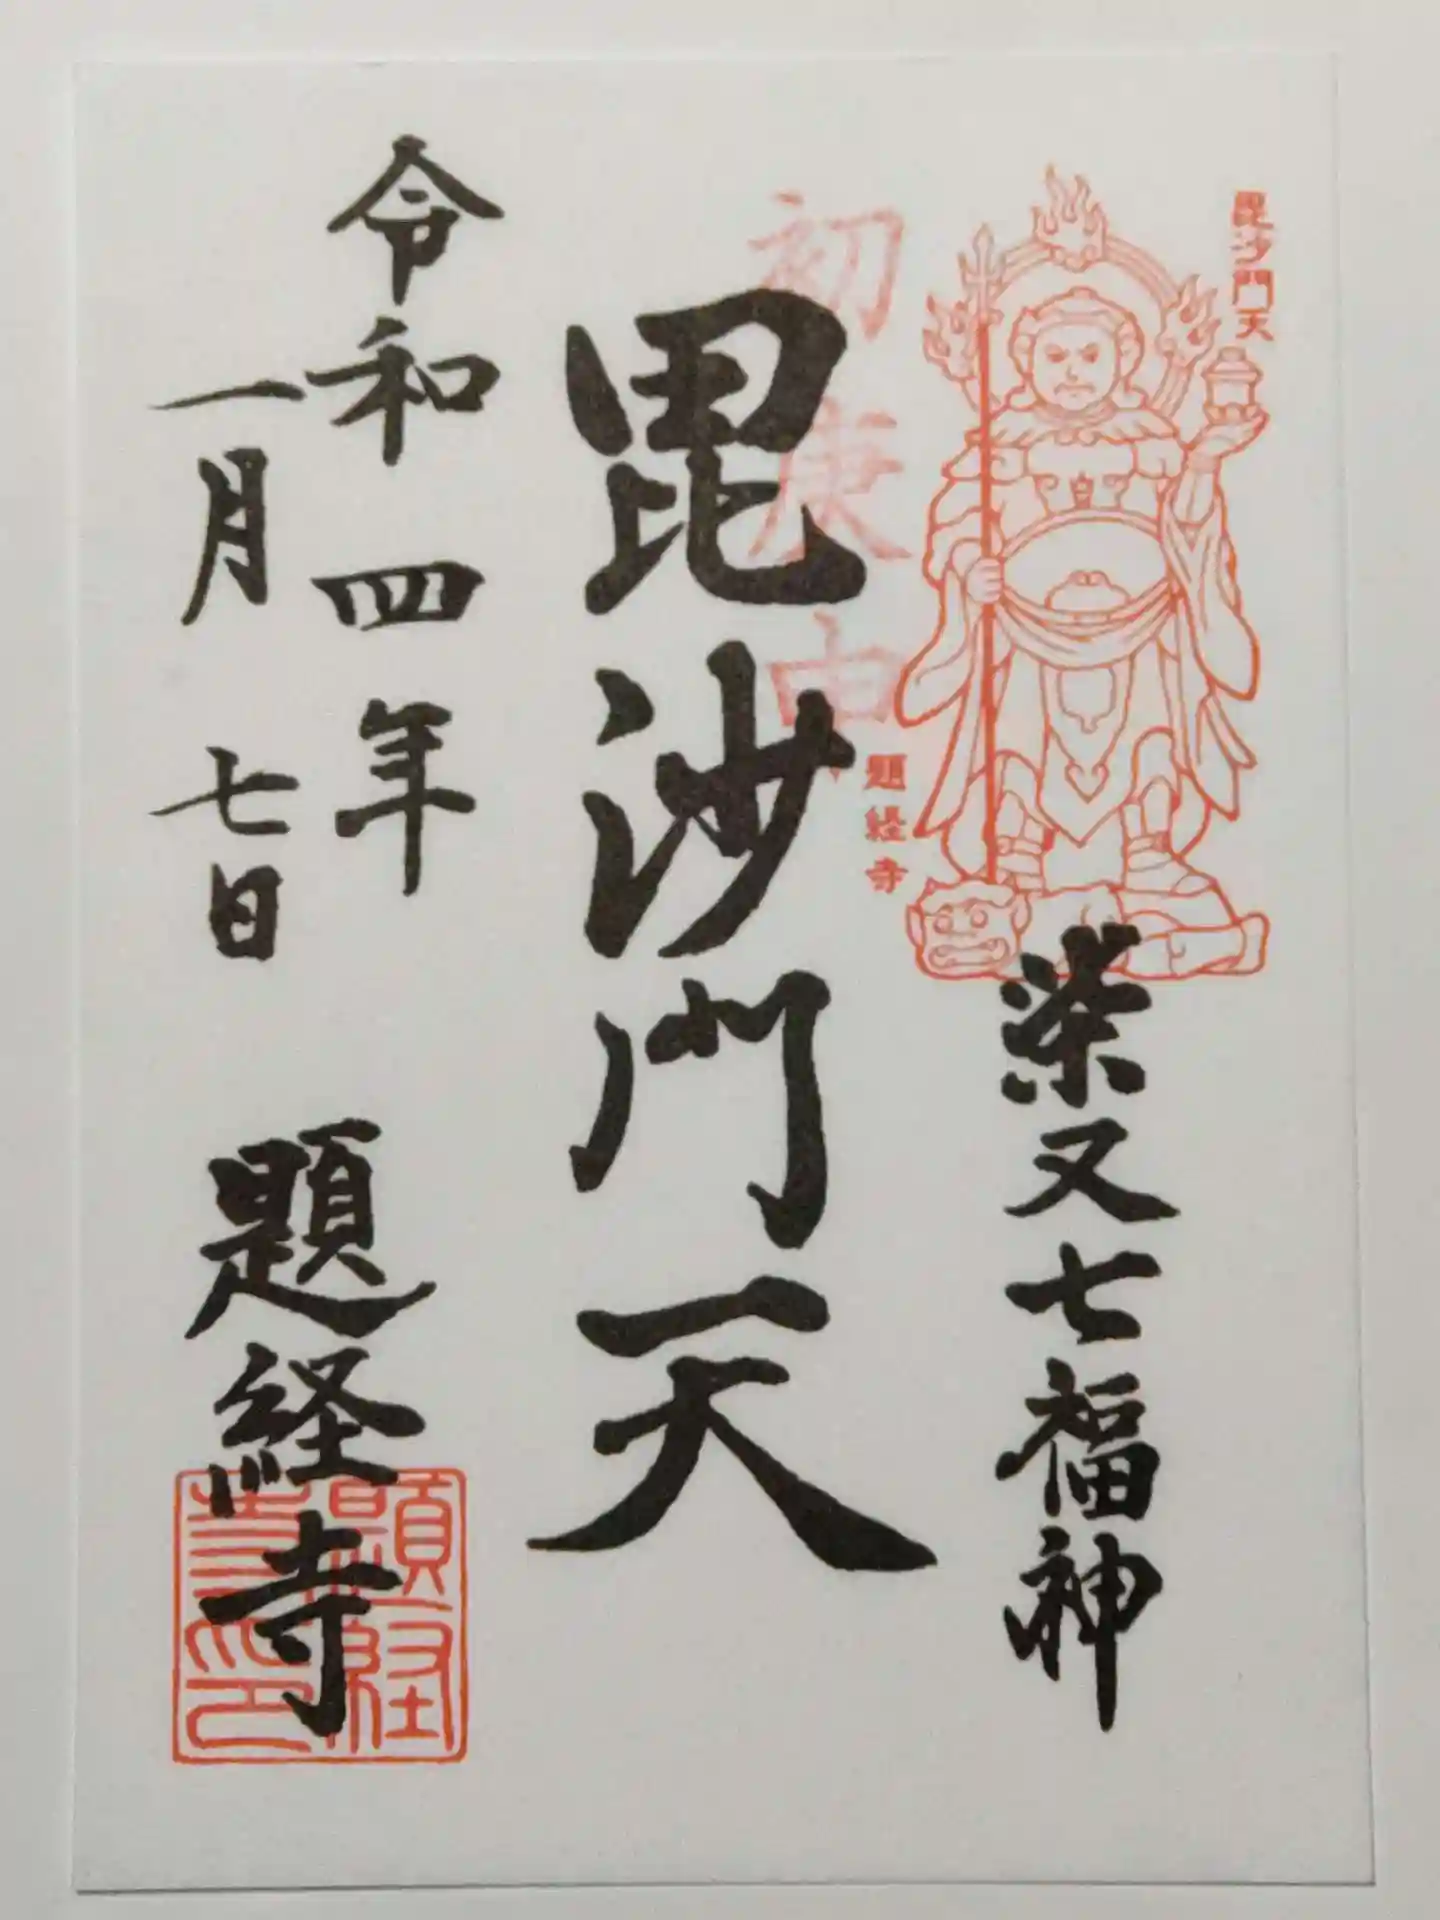 毘沙門天
柴又七福神
初庚申
題経寺
毘沙門天
令和四年
一月七日
題経寺
題経寺印